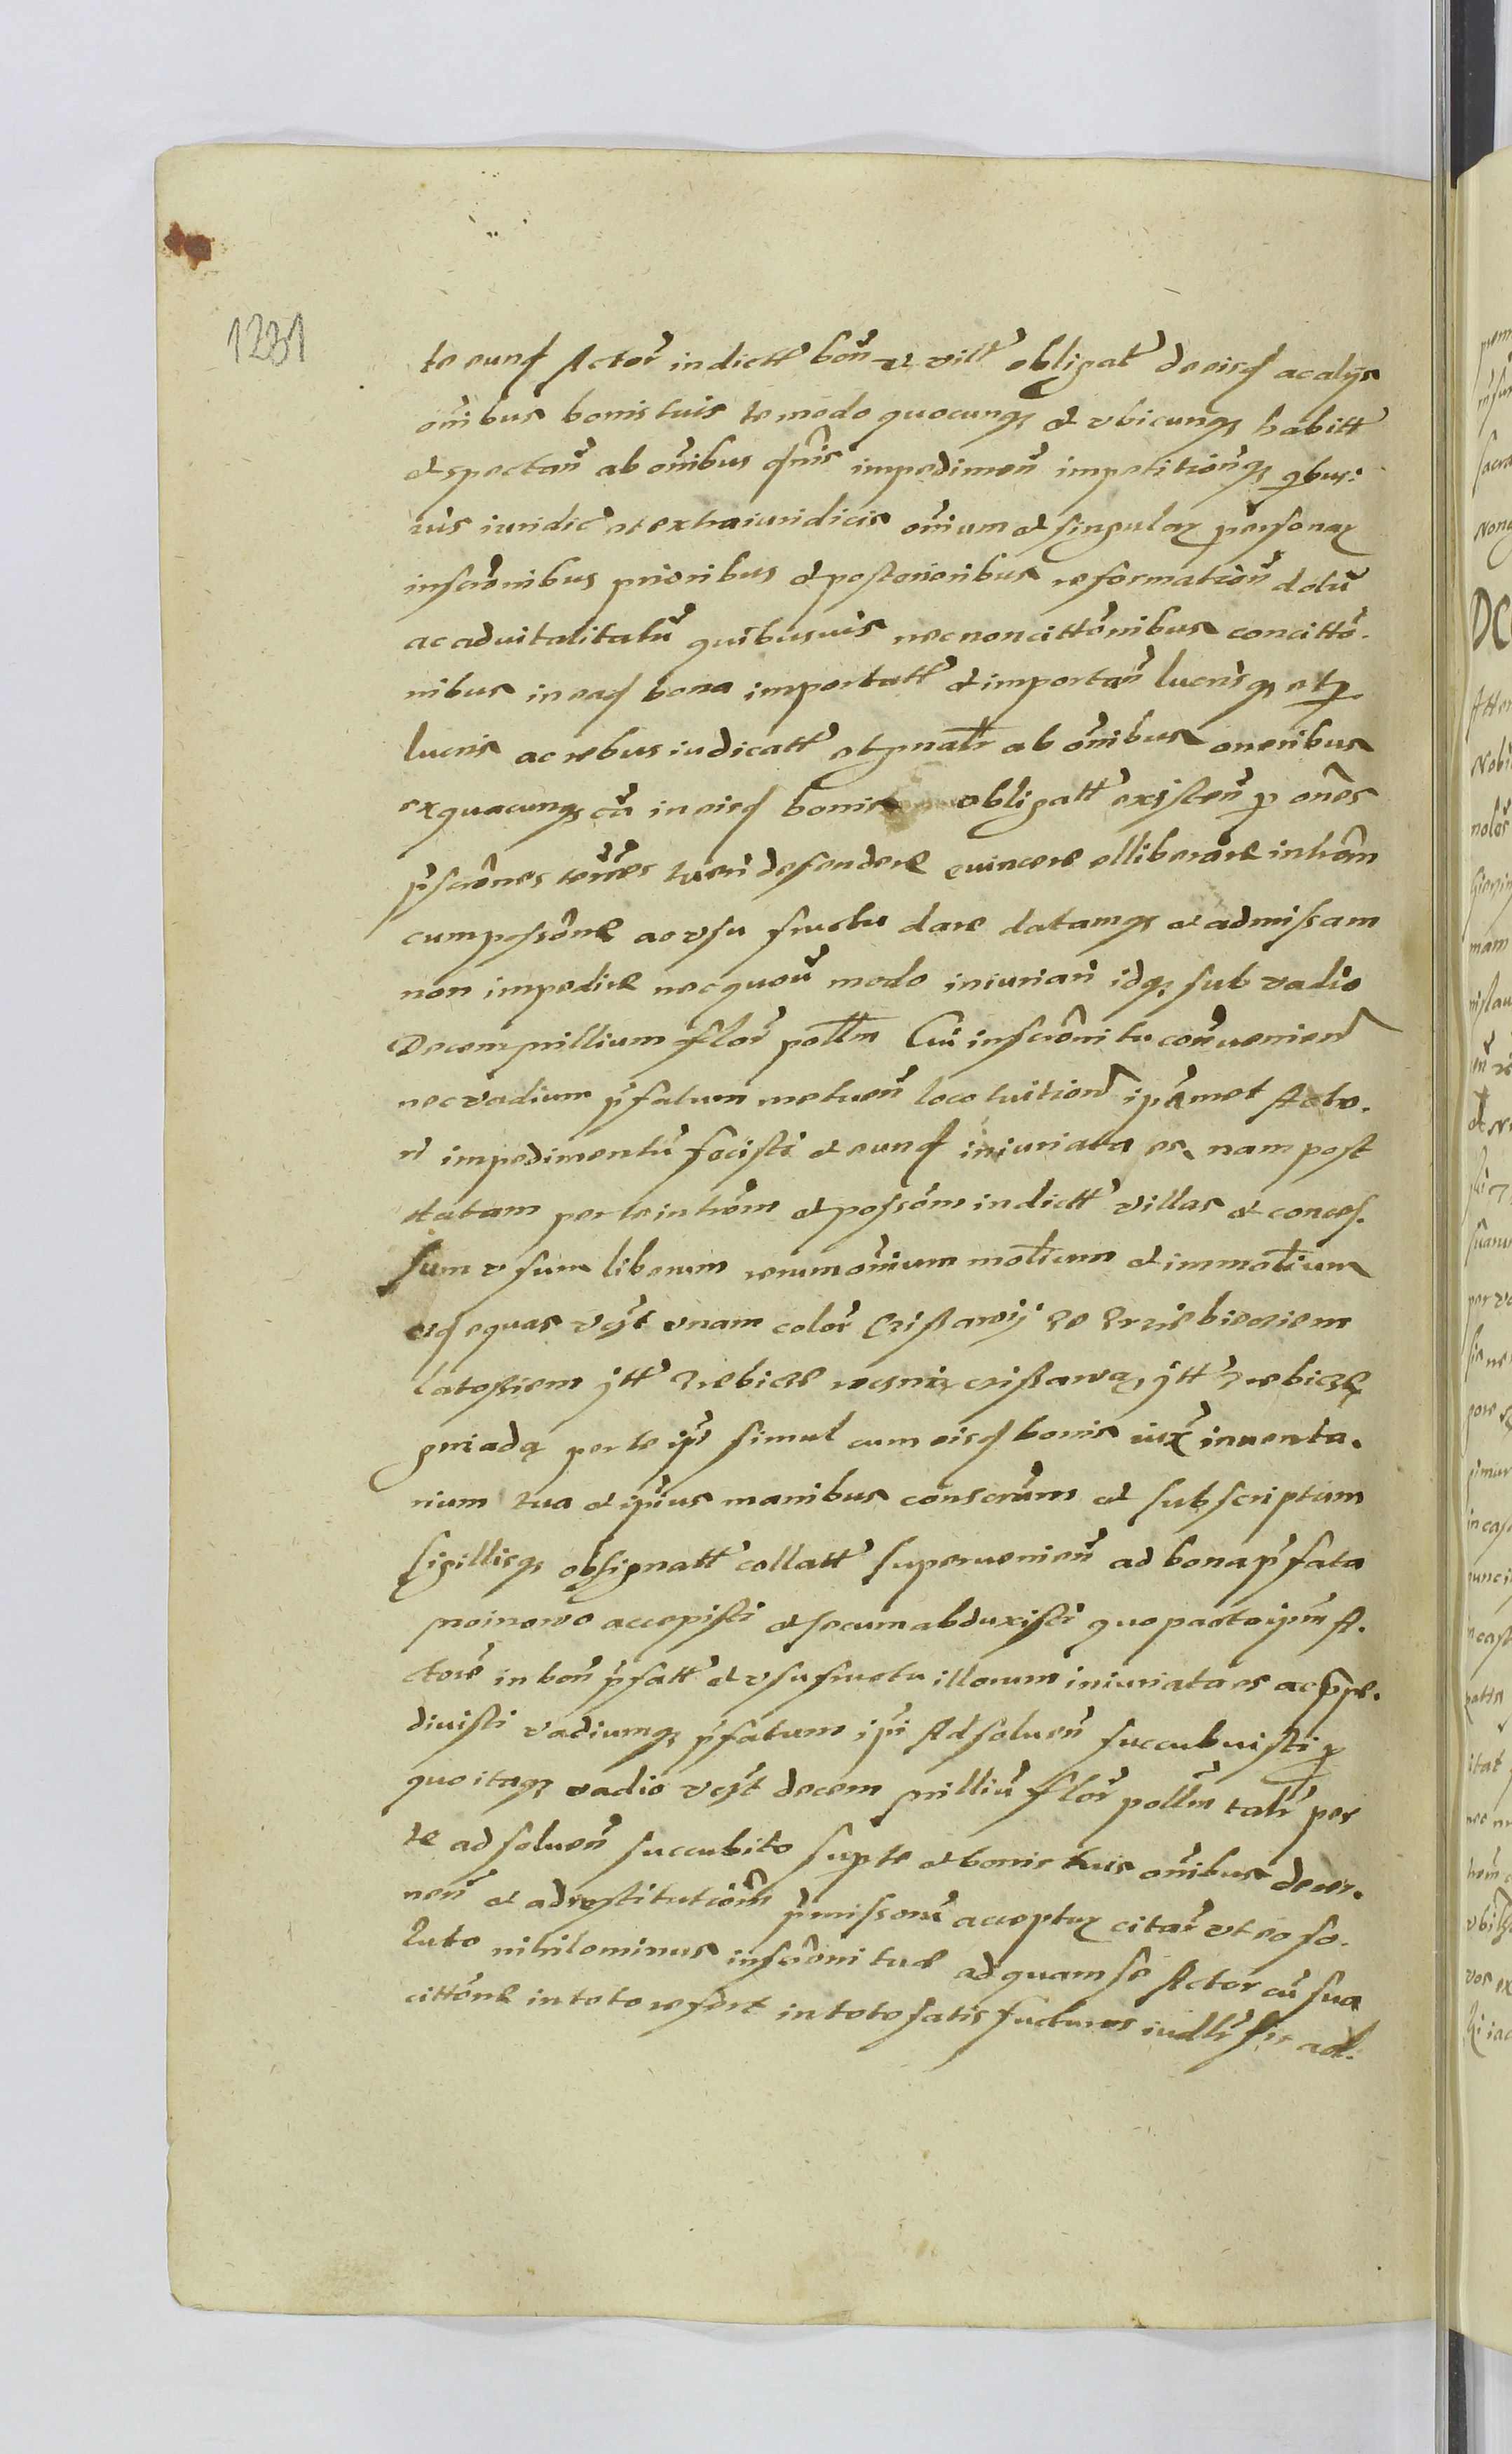 1231
te eund Actor in dictt bon et vill obligat de eisd ac alÿs
oibus bonis tuis te modo quocunq et vbicunq habitt
et spectan ab oibus qnis impedimen impetitionq qbus:
uis iuridic et extraiuridicis oium et singular personar
inscrōnibus prioribus et posterioribus reformation dotu
ac aduitalitatu quibusuis necnon cittōnibus concittō-
nibus in ead bona importatt et importan lucrisq et p
lucris ac rebus iudicatt et gnalr ab oibus oneribus
ex quacunq ca in eisd bonis obligatt existen p ones
pscrōnes terres tueri defendere euincere et liberare introm
cum possōne ac vsu fructu dare datamq et admissam
non impedire nec quou modo iniuriari idq sub vadio
Decem millium flor pollm Cui inscrōni tu contrauenien
nec vadium pfatum metuen loco tuition ipsimet Acto-
ri impedimentu fecisti et eund iniuriata es, nam post
datam per te introm et possom in dictt villas et conces-
sum vsum liberum rerum oium motium et immotium
eqd equas vczt vnam color Czißawÿ ze zrzebieciem
latosiem itt zrebicze roczni czißawą, itt zrebicze
gniadą per te ips simul cum eisd bonis iux inuenta-
rium tua et ipius manibus conscrum et subscriptum
sigillisq obsignatt collatt superuenien ad bona pfata
noinowo accepisti et tecum abduxisti quo pacto ipm A-
ctore in bon pfatt et vsufructu illorum iniuriata es ac ppe-
diuisti vadiumq pfatum ipi Ad soluen succubuisti p
quo itaq vadio vczt decem milliu flor pollm talr per
te ad soluen succubito sup te et bonis tuis oibus decer-
nen et ad restitutiom pmissoru acceptor citar vt eo so-
luto nihilominus inscrōni tuæ ad quam se Actor cu sua
cittōne in toto refert in toto satis factura es iudlr sis ad-